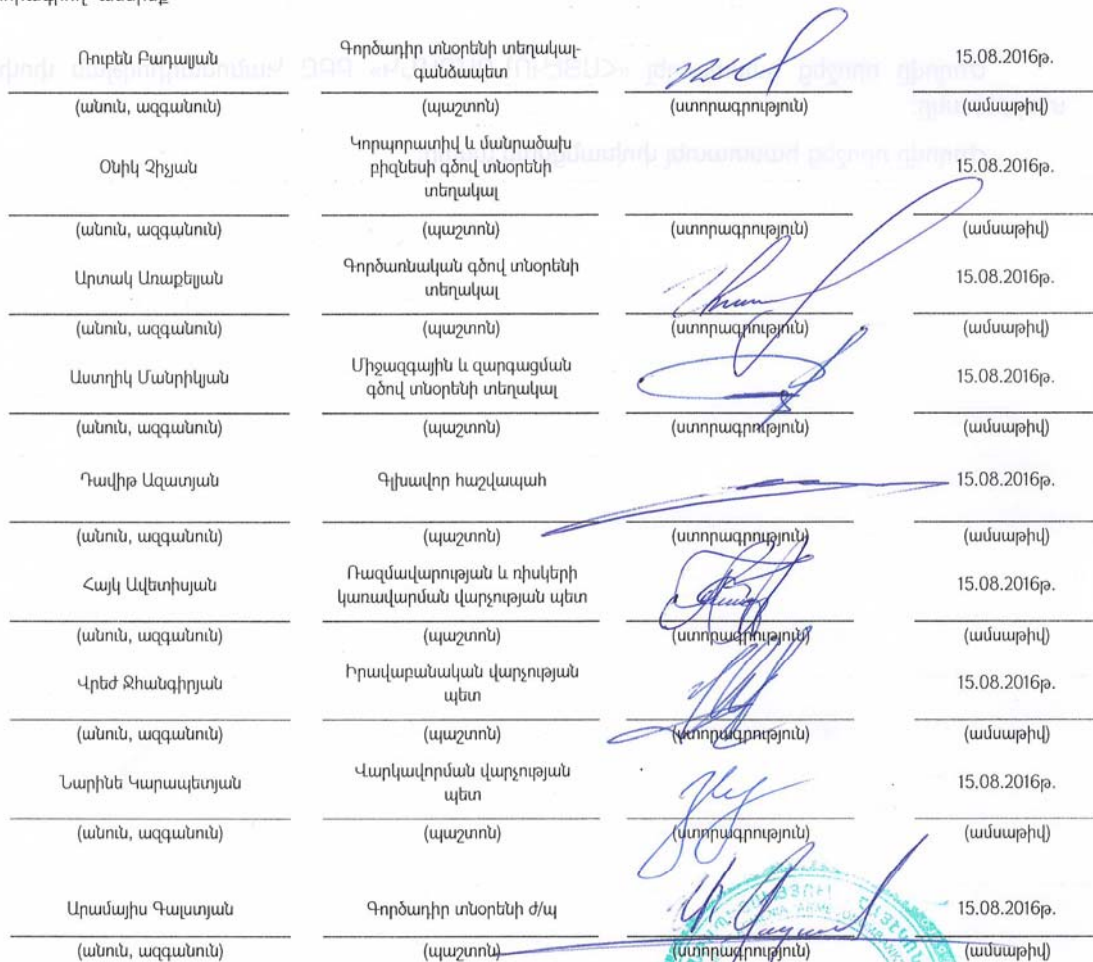 Ռուբեն Բադալյան Գործադիր տնօրենի տեղակալ- 15.08.2016թ.
գանձապետ
(անուն, ազգանուն) (պաշտոն) (ստորագրություն) (ամսաթիվ)
Օնիկ Չիչյան Կորպորատիվ և մանրածախ 15.08.2016թ.
բիզնեսի գծով տնօրենի
տեղակալ
(անուն, ազգանուն) (պաշտոն) (ստորագրություն) (ամսաթիվ)
Արտակ Առաքելյան Գործառնական գծով տնօրենի 15.08.2016թ.
տեղակալ
(անուն, ազգանուն) (պաշտոն) (ստորագրություն) (ամսաթիվ)
Աստղիկ Մանրիկյան Միջազգային և զարգացման 15.08.2016թ.
գծով տնօրենի տեղակալ
(անուն, ազգանուն) (պաշտոն) (ստորագրություն) (ամսաթիվ)
Դավիթ Ազատյան Գլխավոր հաշվապահ 15.08.2016թ.
(անուն, ազգանուն) (պաշտոն) (ստորագրություն) (ամսաթիվ)
Հայկ Ավետիսյան Ռազմավարության և ռիսկերի 15.08.2016թ.
կառավարման վարչության պետ
(անուն, ազգանուն) (պաշտոն) (ստորագրություն) (ամսաթիվ)
Վրեժ Ջհանգիրյան Իրավաբանական վարչության 15.08.2016թ.
պետ
(անուն, ազգանուն) (պաշտոն) (ստորագրություն) (ամսաթիվ)
Նարինե Կարապետյան Վարկավորման վարչության 15.08.2016թ.
պետ
(անուն, ազգանուն) (պաշտոն) (ստորագրություն) (ամսաթիվ)
Արամայիս Գալստյան Գործադիր տնօրենի ժ/պ 15.08.2016թ.
(անուն, ազգանուն) (պաշտոն) (ստորագրություն) (ամսաթիվ)